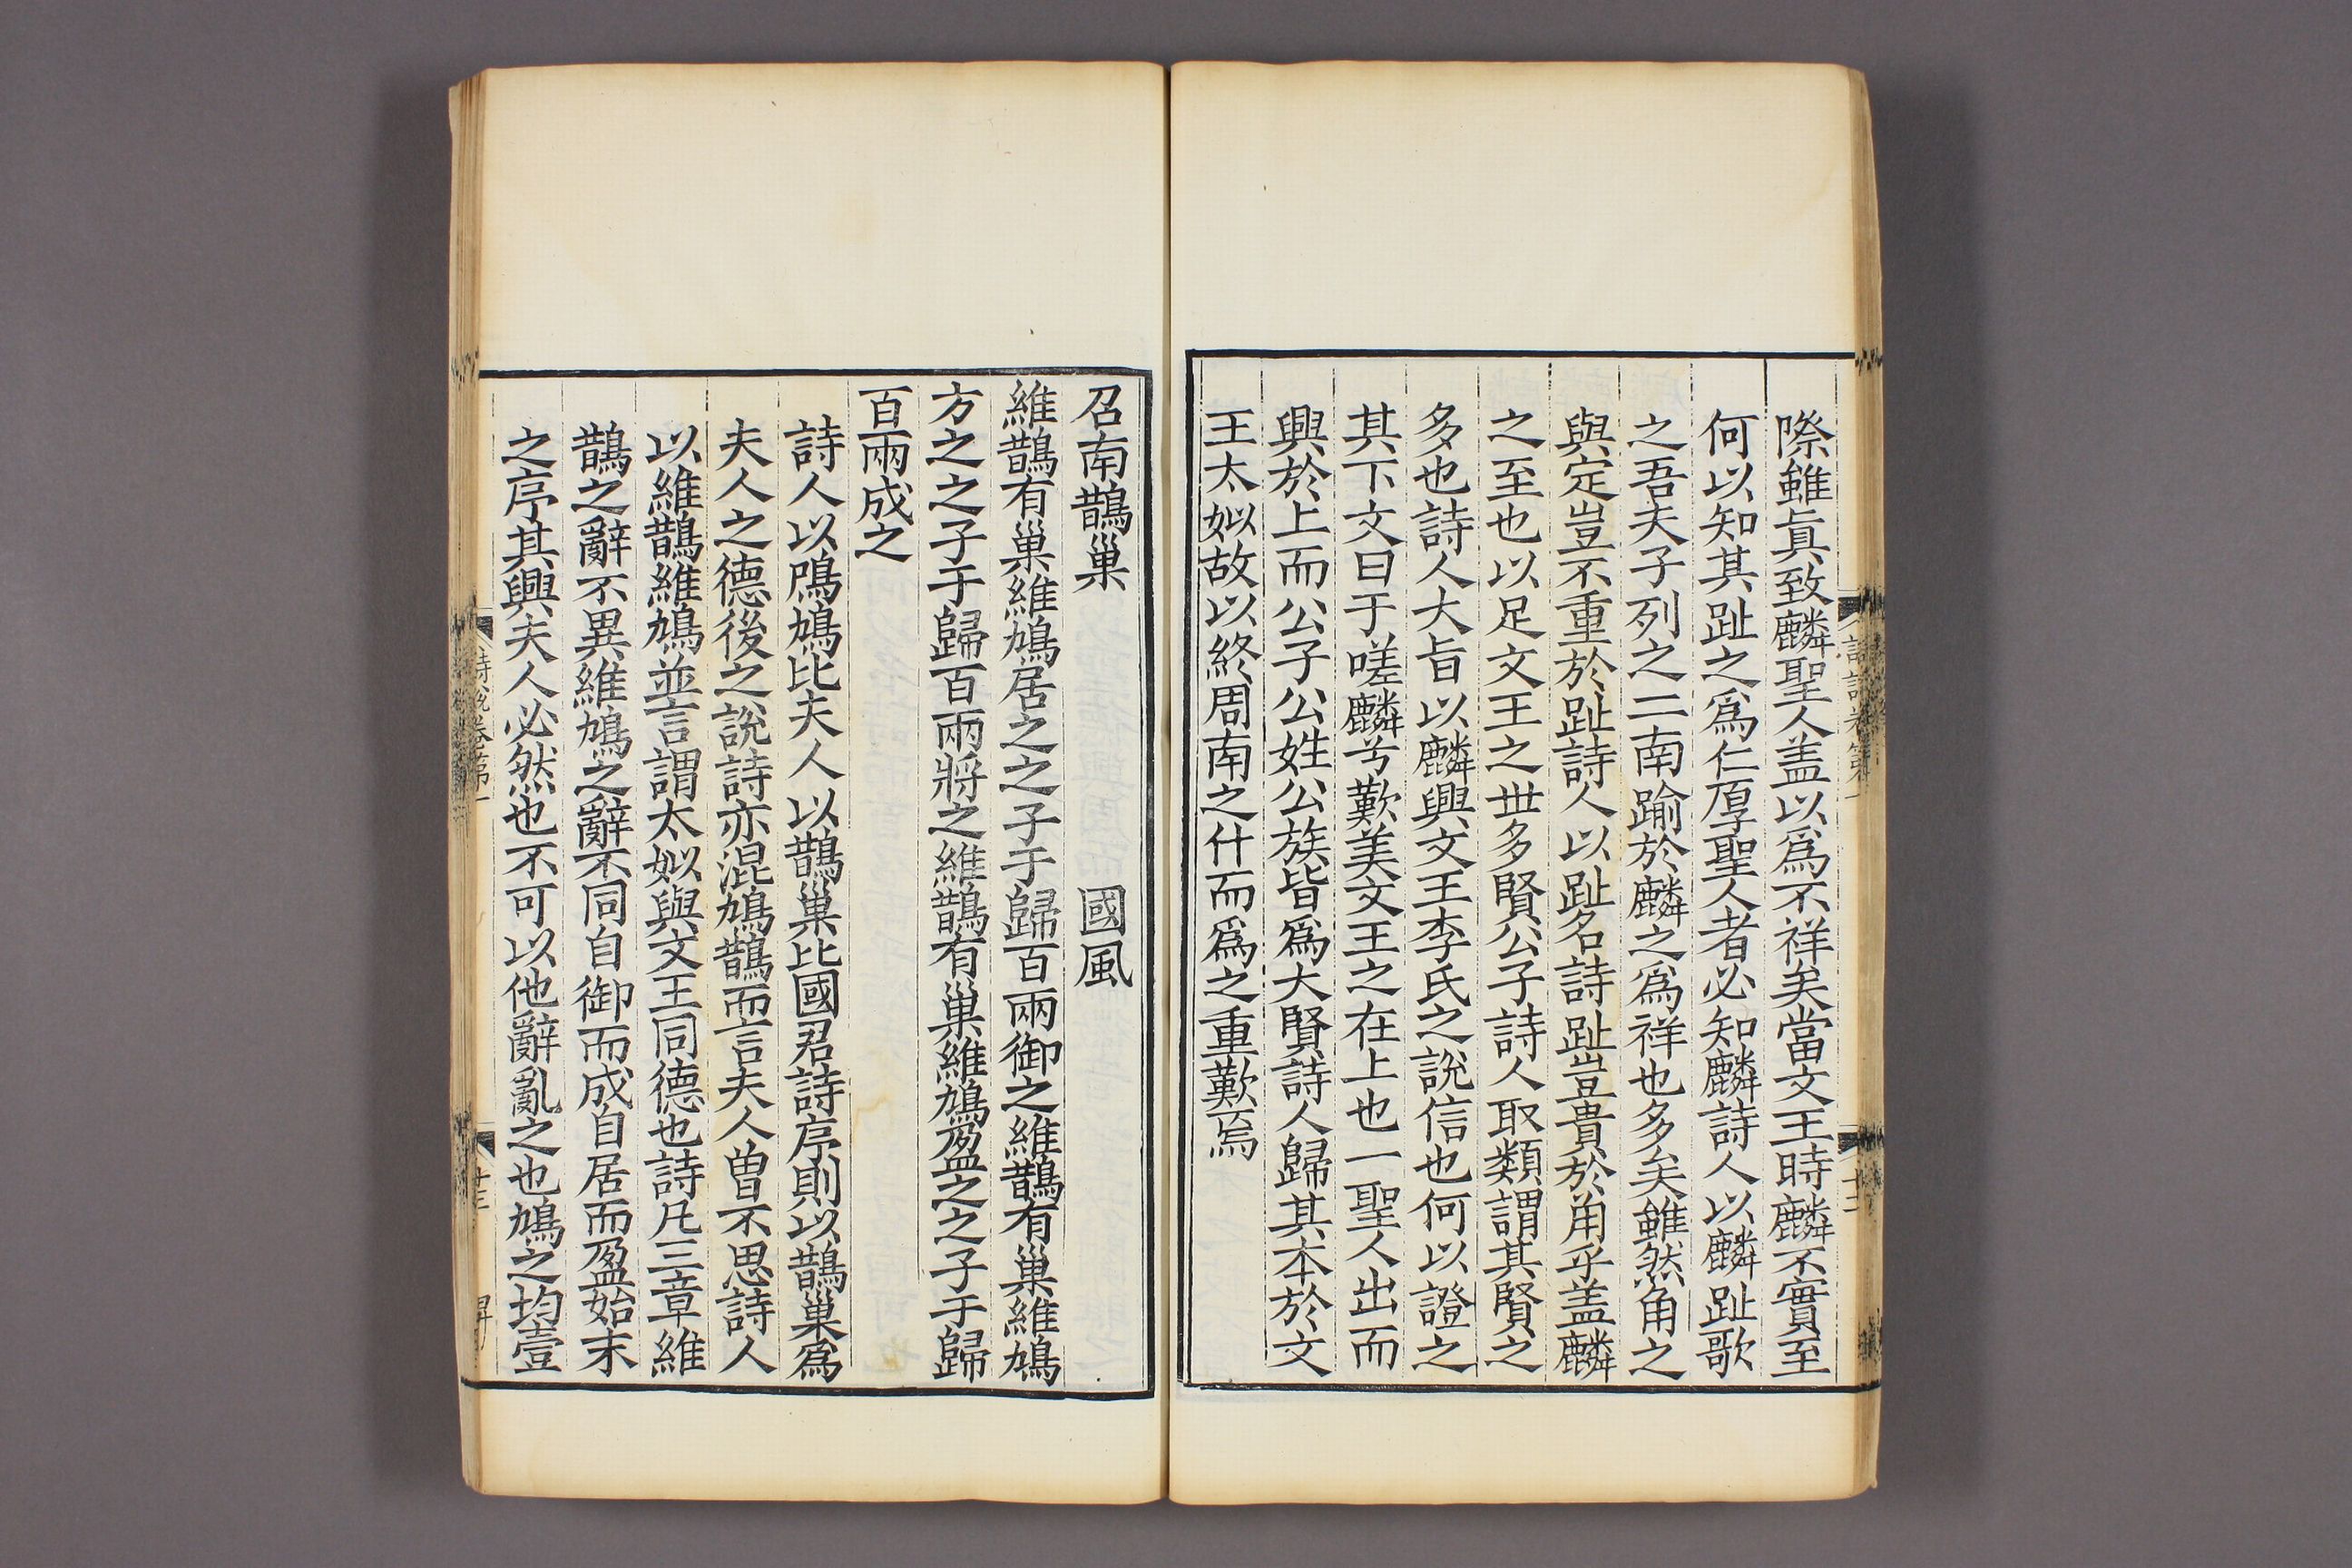 際雖眞致麟聖人盖以爲不祥矣當文王時麟不實至
何以知其趾之爲仁厚聖人者必知麟詩人以麟趾歌
之吾夫子列之二南踰於麟之爲祥也多矣雖然角之
與定豈不重於趾詩人以趾名詩趾豈貴於角乎盖麟
之至也以足文王之世多賢公子詩人取類謂其賢之
多也詩人大旨以麟興文王李氏之說信也何以證之
其下文曰于嗟麟兮歎美文王之在上也一聖人出而
興於上而公子公姓公族皆爲大賢詩人歸其本於文
王太姒故以終周南之什而爲之重歎焉
召南鵲巢 國風
維鵲有巢維鳩居之之子于歸百兩御之維鵲有巢維鳩
方之之子于歸百兩將之維鵲有巢維鳩盈之之子于歸
百兩成之
詩人以鳲鳩比夫人以鵲巢比國君詩序則以鵲巢爲
夫人之德後之說詩亦混鳩鵲而言夫人曾不思詩人
以維鵲維鳩並言謂太姒與文王同德也詩凡三章維
鵲之辭不異維鳩之辭不同自御而成自居而盈始末
之序其興夫人必然也不可以他辭亂之也鳩之均壹
詩說卷第一
十三